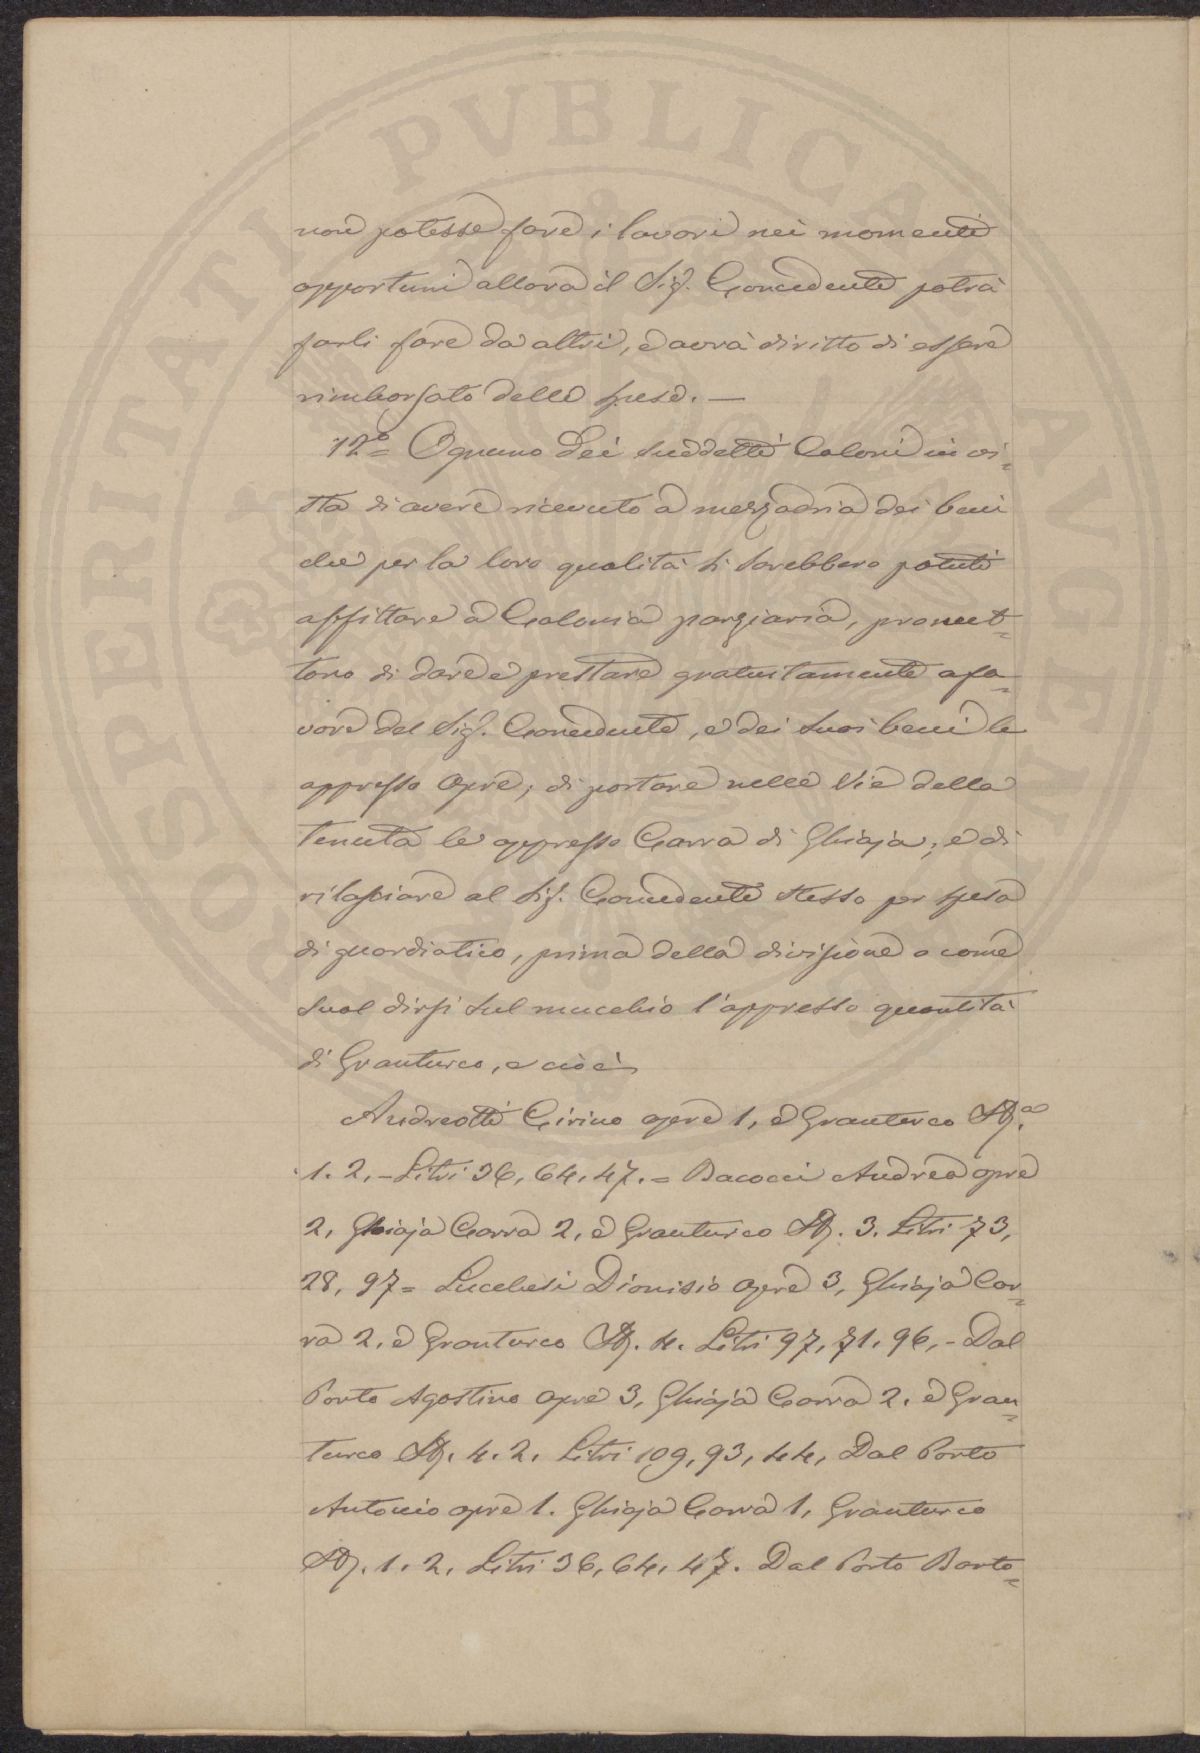 non potesse fare i lavori nei momenti
opportuni allora il Sig. Concedente potrà
farli fare da altri, e avrà diritto di essere
rimborsato delle spese. —
12º= Ognuno dei suddetti Coloni in vi=
sta di avere ricevuto a mezzadria dei beni
che per la loro qualità si sarebbero potuti
affittare a Colonia parziaria, promet=
tono di dare e prestare gratuitamente a fa=
vore del Sig. Concedente, e dei suoi beni le
appresso Opre; di portare nelle Vie della
tenuta le appresso Carra di Ghiaja; e di
rilasciare al Sig. Concedente stesso per spesa
di guardiatico, prima della divisione o come
suol dirsi sul mucchio l'appresso quantità
di Granturco, e cioè:
Andreotti Cirino opre 1, e Granturco St.a
1. 2. - Litri 36, 64, 47. = Bacocci Andrea opre
2, Ghiaja Carra 2, e Granturco St. 3. Litri 73,
28, 97= Lucchesi Dionisio opre 3, Ghiaja Car=
ra 2. e Granturco St. 4. Litri 97, 71, 96, - Dal
Porto Agostino opre 3, Ghiaja Carra 2. e Gran=
turco St. 4. 2. Litri 109, 93, 44, Dal Porto
Antonio opre 1. Ghiaja Carra 1, Granturco
St. 1. 2, Litri 36, 64, 47. Dal Porto Barto=